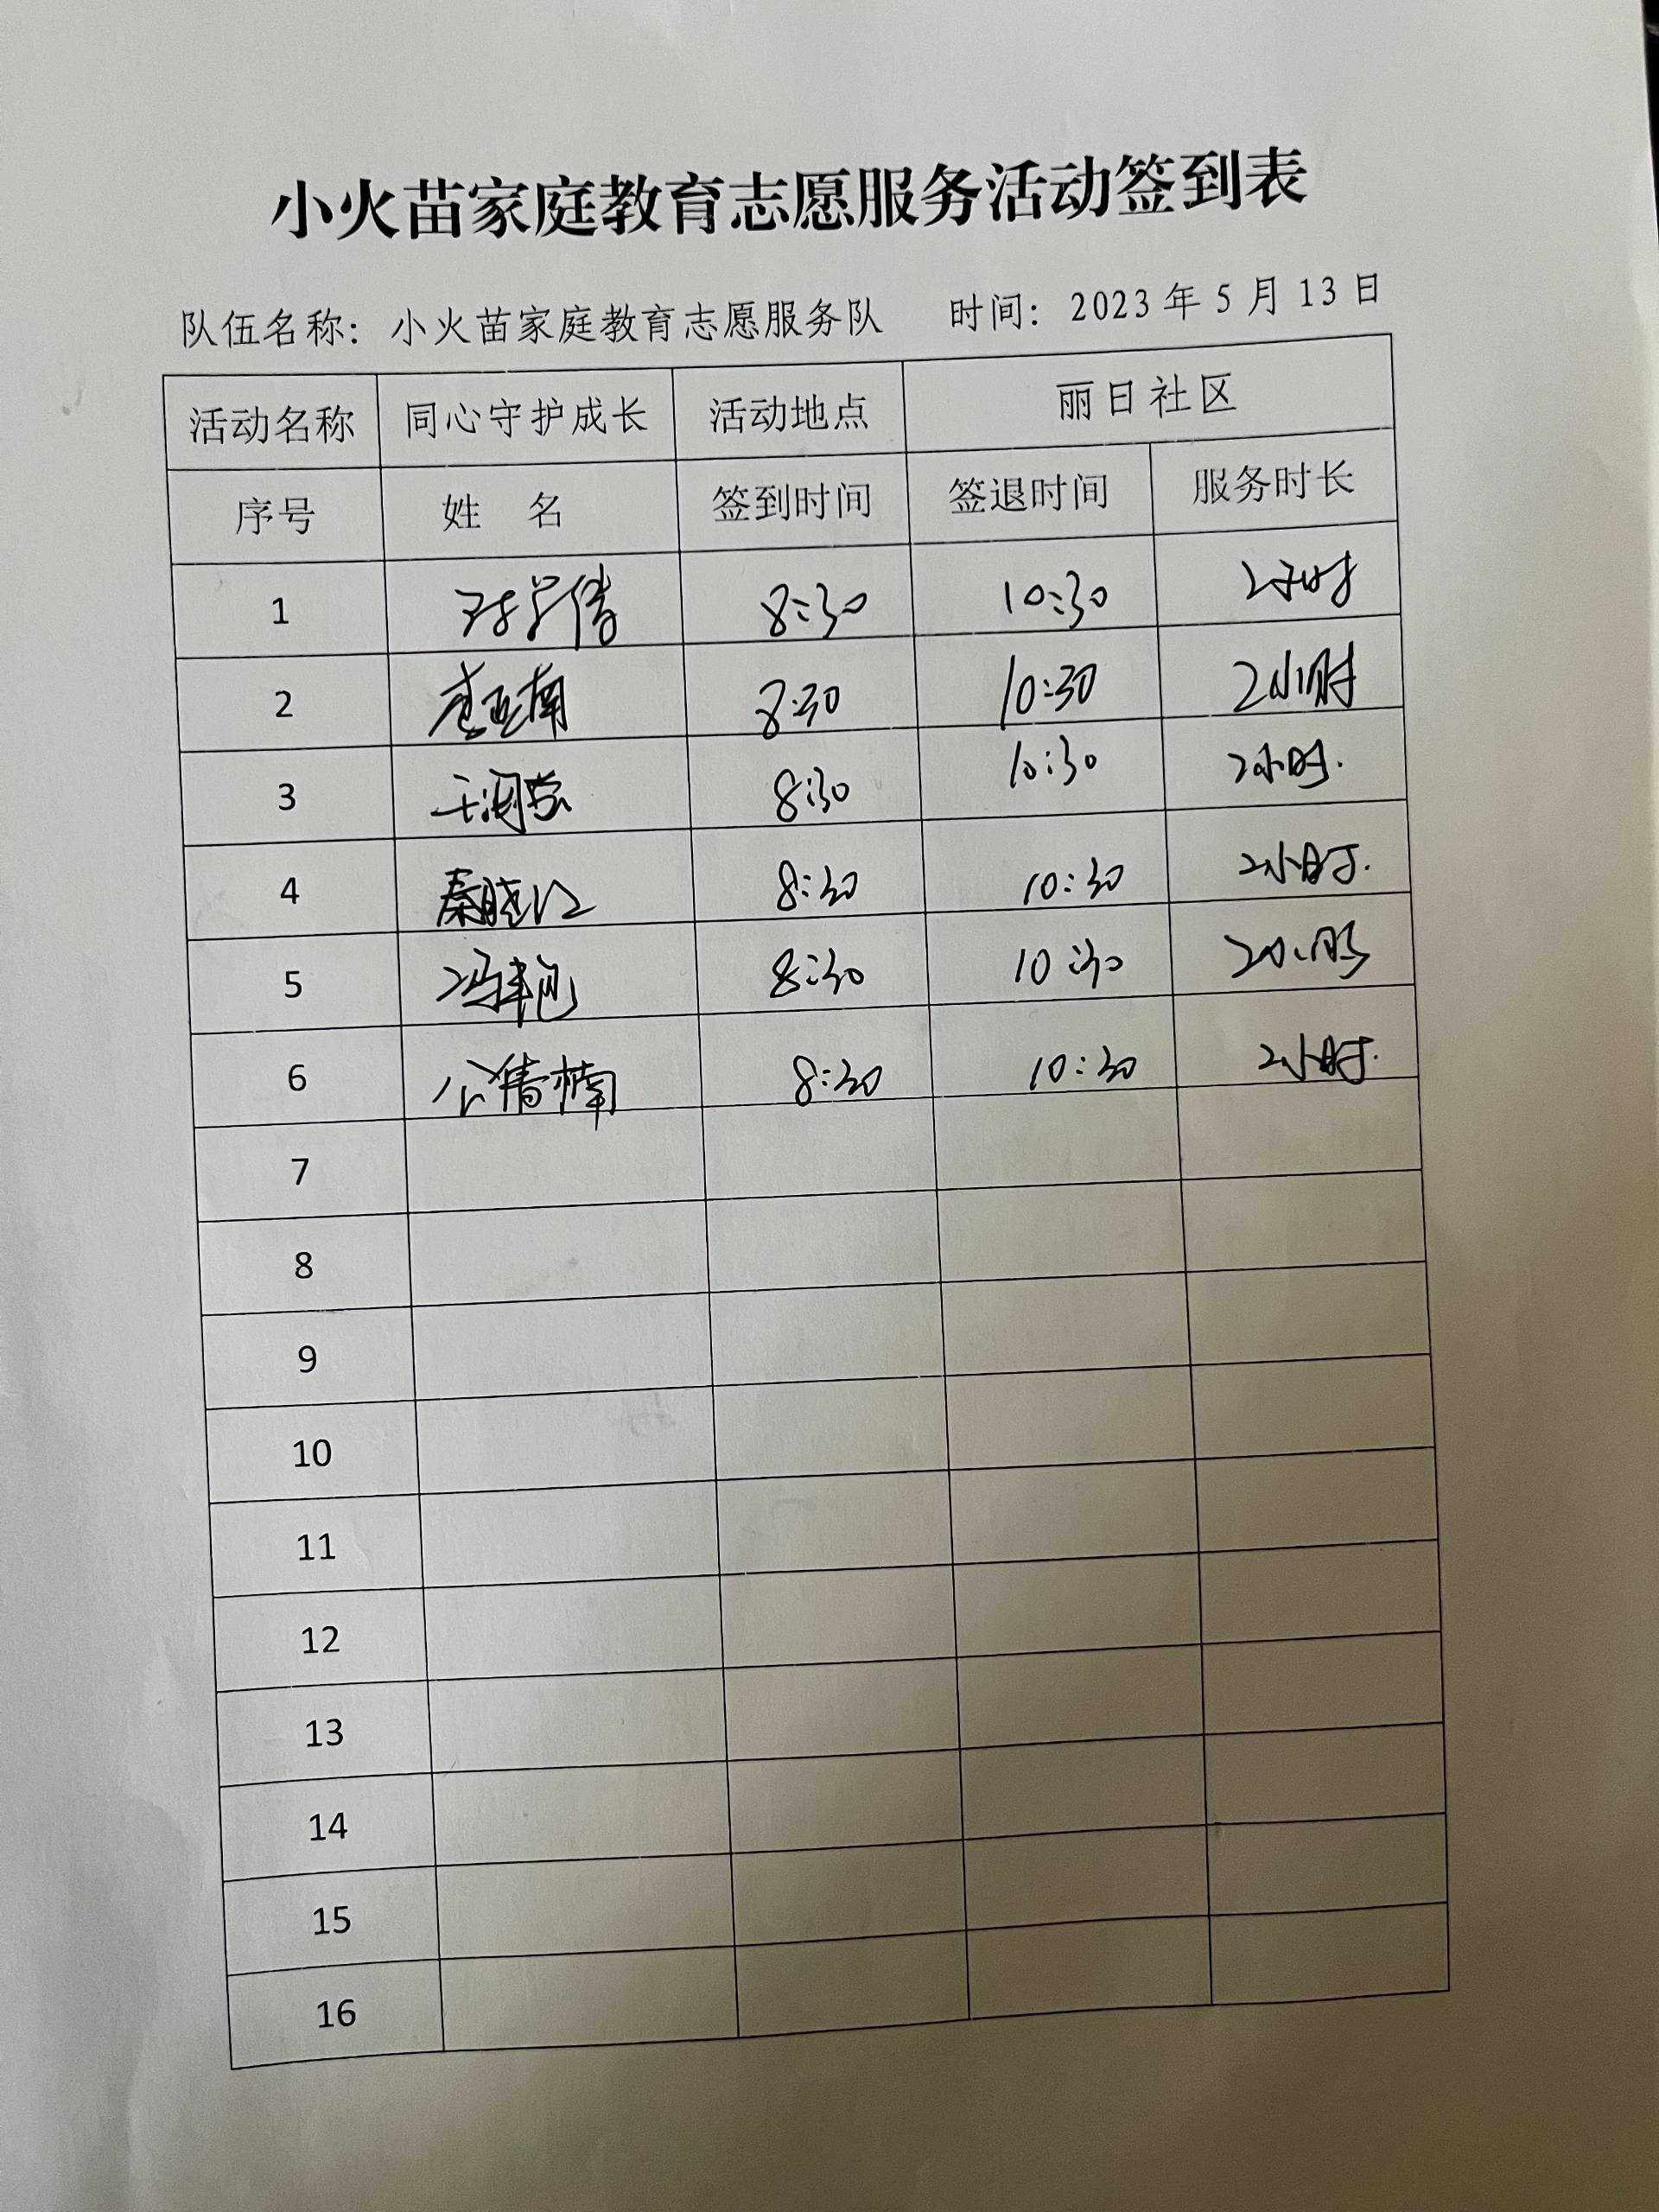 小火苗家庭教育志愿服务活动签到表
队伍名称：小火苗家庭教育志愿服务队 时间：2023年5月13日
活动名称 同心守护成长 活动地点 丽日社区
序号 姓 名 签到时间 签退时间 服务时长
1 8:30 10:30 2小时
2 8:30 10:30 2小时
3 8:30 10:30 2小时.
4 秦晓红 8:30 10:30 2小时.
5 冯艳 8:30 10:30 2小时
6 公倩楠 8:30 10:30 2小时.
7
8
9
10
11
12
13
14
15
16